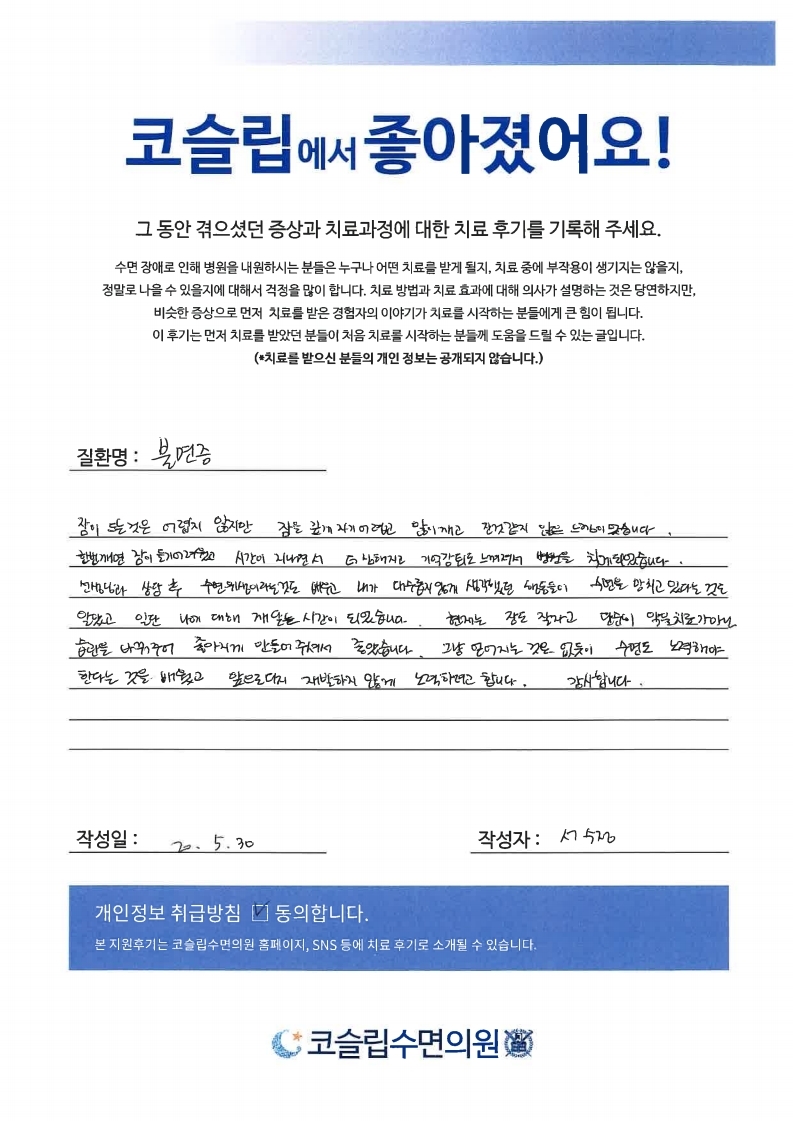 코슬립에서 좋아졌어요!
그 동안 겪으셨던 증상과 치료과정에 대한 치료 후기를 기록해 주세요.
수면 장애로 인해 병원을 내원하시는 분들은 누구나 어떤 치료를 받게 될지, 치료 중에 부작용이 생기지는 않을지,
정말로 나을 수 있을지에 대해서 걱정을 많이 합니다. 치료 방법과 치료 효과에 대해 의사가 설명하는 것은 당연하지만,
비슷한 증상으로 먼저 치료를 받은 경험자의 이야기가 치료를 시작하는 분들에게 큰 힘이 됩니다.
이 후기는 먼저 치료를 받았던 분들이 처음 치료를 시작하는 분들께 도움을 드릴 수 있는 글입니다.
(*치료를 받으신 분들의 개인 정보는 공개되지 않습니다.)
질환명 : 불면증
잠이 드는것은 어렵지 않지만 잠을 깊게 자기 어렵고 많이 깨고 잔것같지 않은 느낌이 많습니다.
한번깨면 잠이 들기어려웠고 시간이 지나면서 더 심해지고 기억감퇴도 느껴져서 병원을 찾게되었습니다.
선생님과 상담 후 수면위생이라는것도 배우고 내가 대수롭지않게 생각했던 행동들이 수면을 망치고 있다는 것도
알았고 일단 나에 대해 깨닫는 시간이 되었습니다. 현재는 잠도 잘자고 단순히 약물치료가아닌
습관을 바꿔주어 좋아지게 만들어 주셔서 좋았습니다. 그냥 얻어지는 것은 없듯이 수면도 노력해야
한다는 것을 배웠고 앞으로다시 재발하지 않게 노력하려고 합니다. 감사합니다.
작성일 : 20. 5. 30
작성자 : 서수정
개인정보 취급방침 ☑ 동의합니다.
본 지원후기는 코슬립수면의원 홈페이지, SNS 등에 치료 후기로 소개될 수 있습니다.
코슬립수면의원